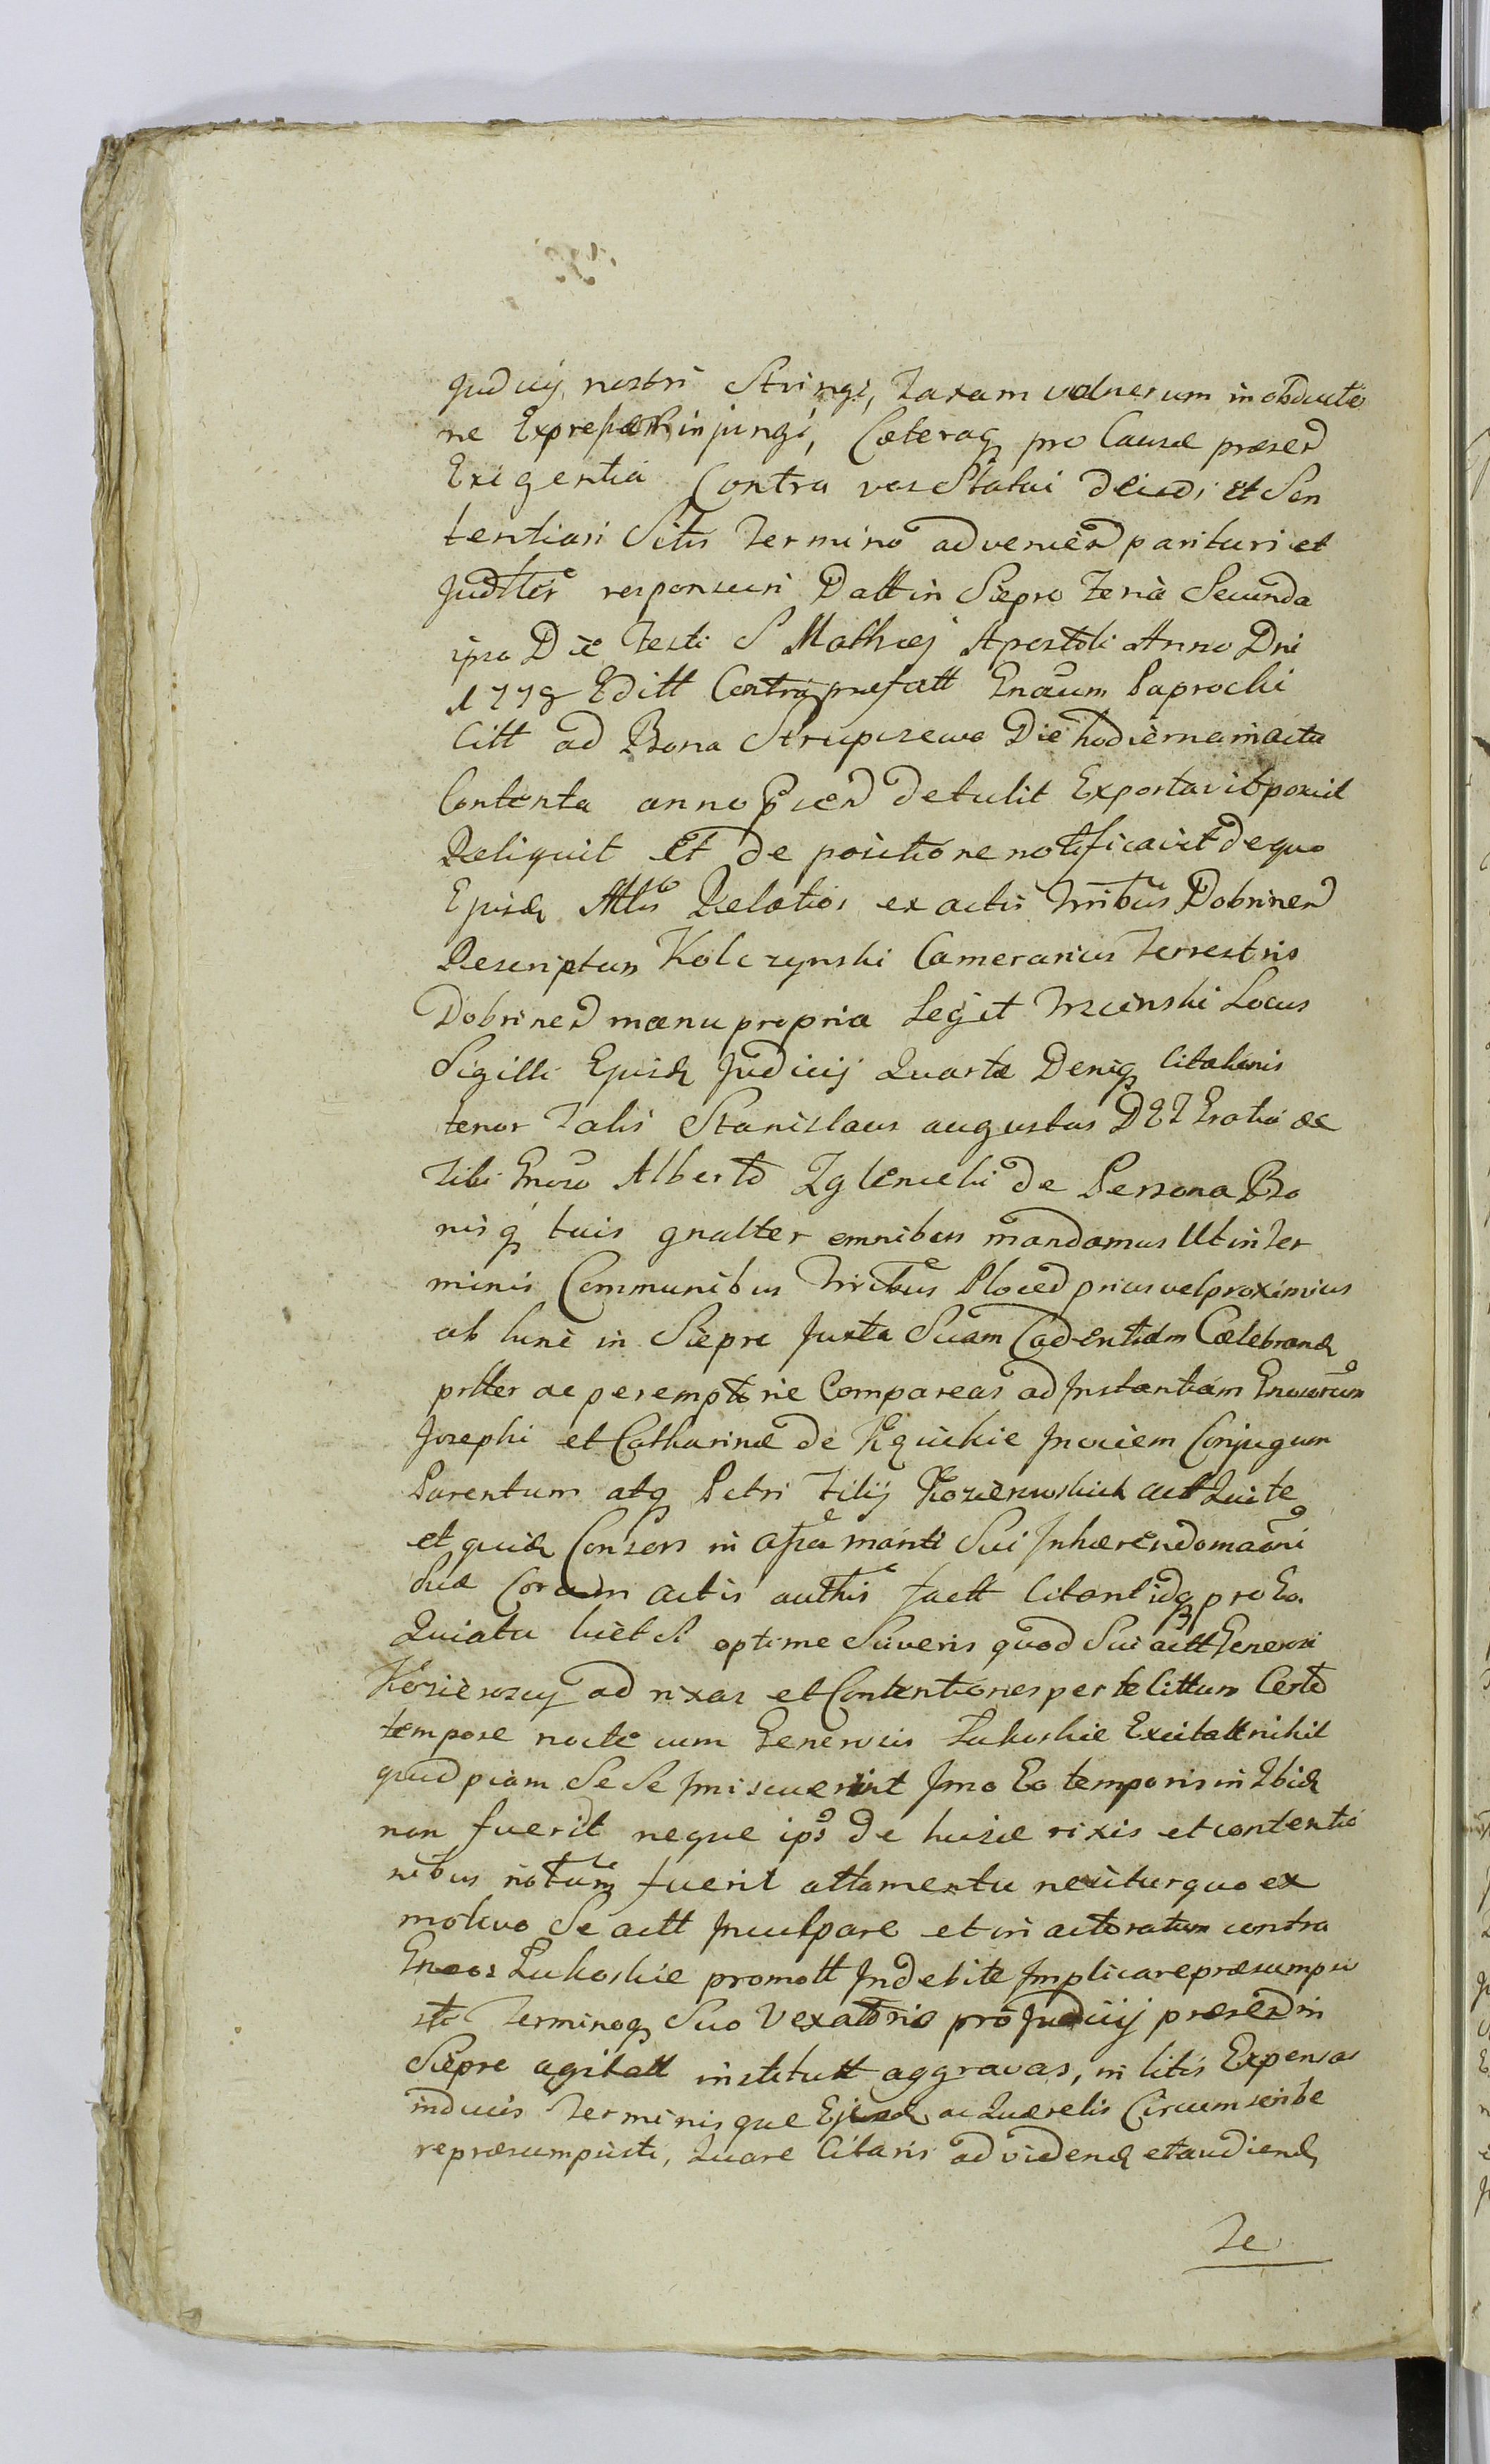 Judicij nostri Stringi, Taxam vulnerum in obductio
ne Expressam injungi, Cæteraq pro Causæ præsen
Exigentia Contra vos Statui decidi et Sen
tentiari Sitis Termino advenien parituri et
Judlter responsuri Datt in Siepre Feria Secunda
ipso Die Festi S Mathæj Apostoli Anno Dni
1778 Editt Contra præfatt Gnosum Paprocki
Citt ad Bona Strupczewo Die hodierna in actu
Contenta anno præsen detulit Exportavit posuit
Reliquit Et de positione notificavit de quo
Ejusd Mtlis Relatior ex actis Trribus Dobrinen
Rescriptum Kolczynski Camerarius Terrestris
Dobrinen manu propria Legit Trzcinski Locus
Sigilli Ejusd Judicij Quartæ Deniq Citationis
tenor Talis Stanislaus augustus DEI Gratia &c
Tibi Gnoso Alberto Zglenicki de Persona Bo
nisq tuis gnalter omnibus mandamus Ut in Ter
minis Communibus Trribus Plocen prius vel proximius
ab hunc in Siepre Juxta Suam Cadentiam Cælebrand
prlter ac peremptorie Compareas ad Instantiam Gnosorum
Josephi et Catharinæ de Kquickie Invicem Conjugum
Parentum atq Petri Filij Kosierowskich act Quite
et quid Consors in assa mariti Sui Inhærendo
Suæ Coram actis authis factt Citantidq pro Eo.
Quia tu licet Si optime Sciveris quod Sui actt Generosi
Kosierowscy ad rixas et Contentiones per te Cittum Certo
tempore nocte cum Generosis Lukoskie Excitatt nihil
quidpiam Se Se Imiscuerint Imo Eo temporis in Ibid
non fuerit neque ipso de hujse rixis et contentio
nibus notum fuerit attamen tu nescitur quo ex
motivo Se actt Inculpare et in actoratum contra
Gnosos Lukoskie promott Indebite Implicare præsumpsi
sti Terminoq Suo Vexatorio pro Judicij præsen in
Siepre agitatt institutt aggravas, in litis Expensas
inducis Terminisque Ejusd ac Quærelis Circumscribe
re præsumpsisti, Quare Citaris ad videnda et audiend
Te